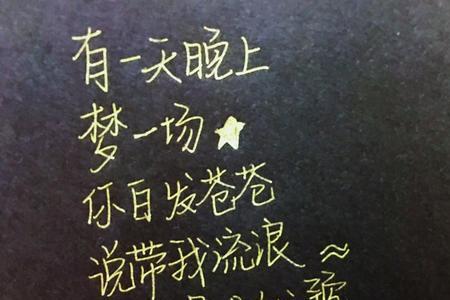 有一天晚上
梦一场
你白发苍苍
说带我流浪～